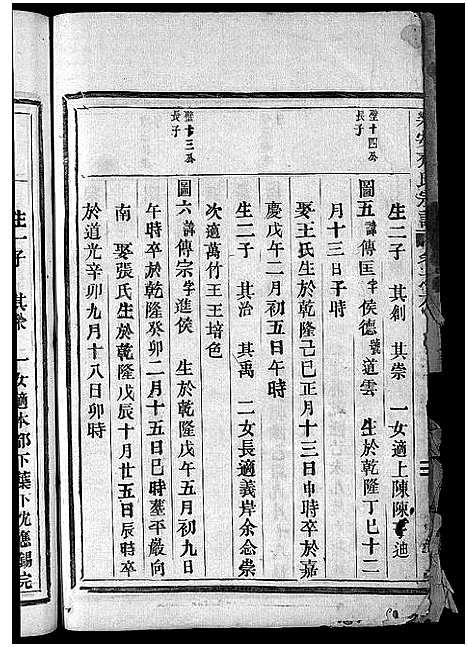 生二子 其創 其崇 一女適上陳陳 迪
聖十四公長子
圖五 諱傳匡 字侯德 號道雲 生於乾隆丁巳十二
月十三日子時
娶王氏生於乾隆己巳正月十三日申時卒於嘉
慶戊午二月初五日午時
生二子 其治 其禹 二女長適義岸余念崇
次適萬竹王王培色
聖十三公長子
圖六 諱傳宗 字進侯 生於乾隆戊午五月初九日
午時卒於乾隆癸卯二月十五日巳時塟平嚴向
南 娶張氏生於乾隆戊辰十月廿五日辰時卒
於道光辛卯九月十八日卯時
生一子 其崇 一女適本都下葉下沈應錫